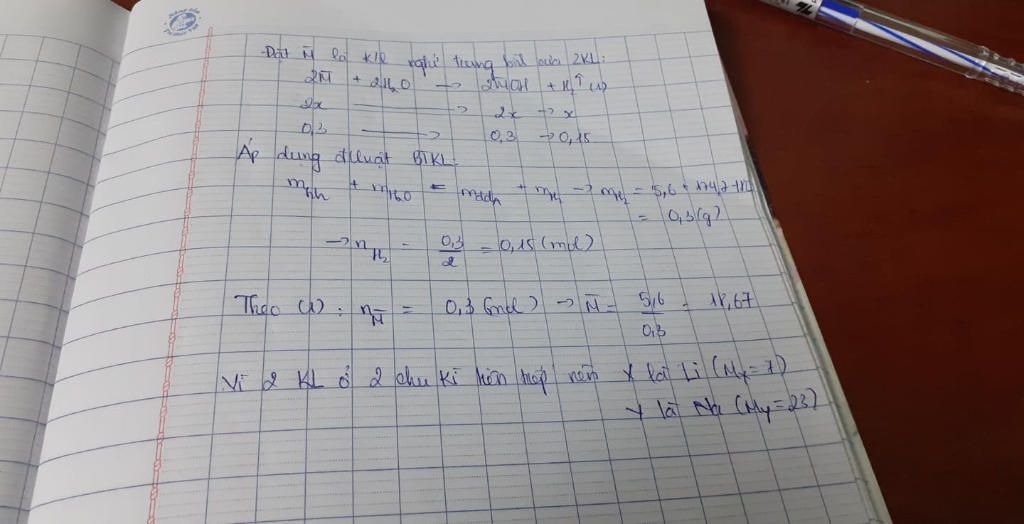 Đặt M̄ là KL nghtử trung bình của 2KL:
2M̄ + 2H₂O → 2M̄OH + H₂↑ (1)
2x → 2x → x
0,3 → 0,3 → 0,15
Áp dụng đluật BTKL:
m_hh + m_H₂O = m_ddA + m_H₂ → m_H₂ = 5,6 +
= 0,3 (g)
→ n_H₂ = 0,3/2 = 0,15 (mol)
Theo (1): n_M̄ = 0,3 (mol) → M̄ = 5,6/0,3 = 18,67
Vì 2 KL ở 2 chu kì liên tiếp nên X là Li (Mx=7)
Y là Na (My=23)